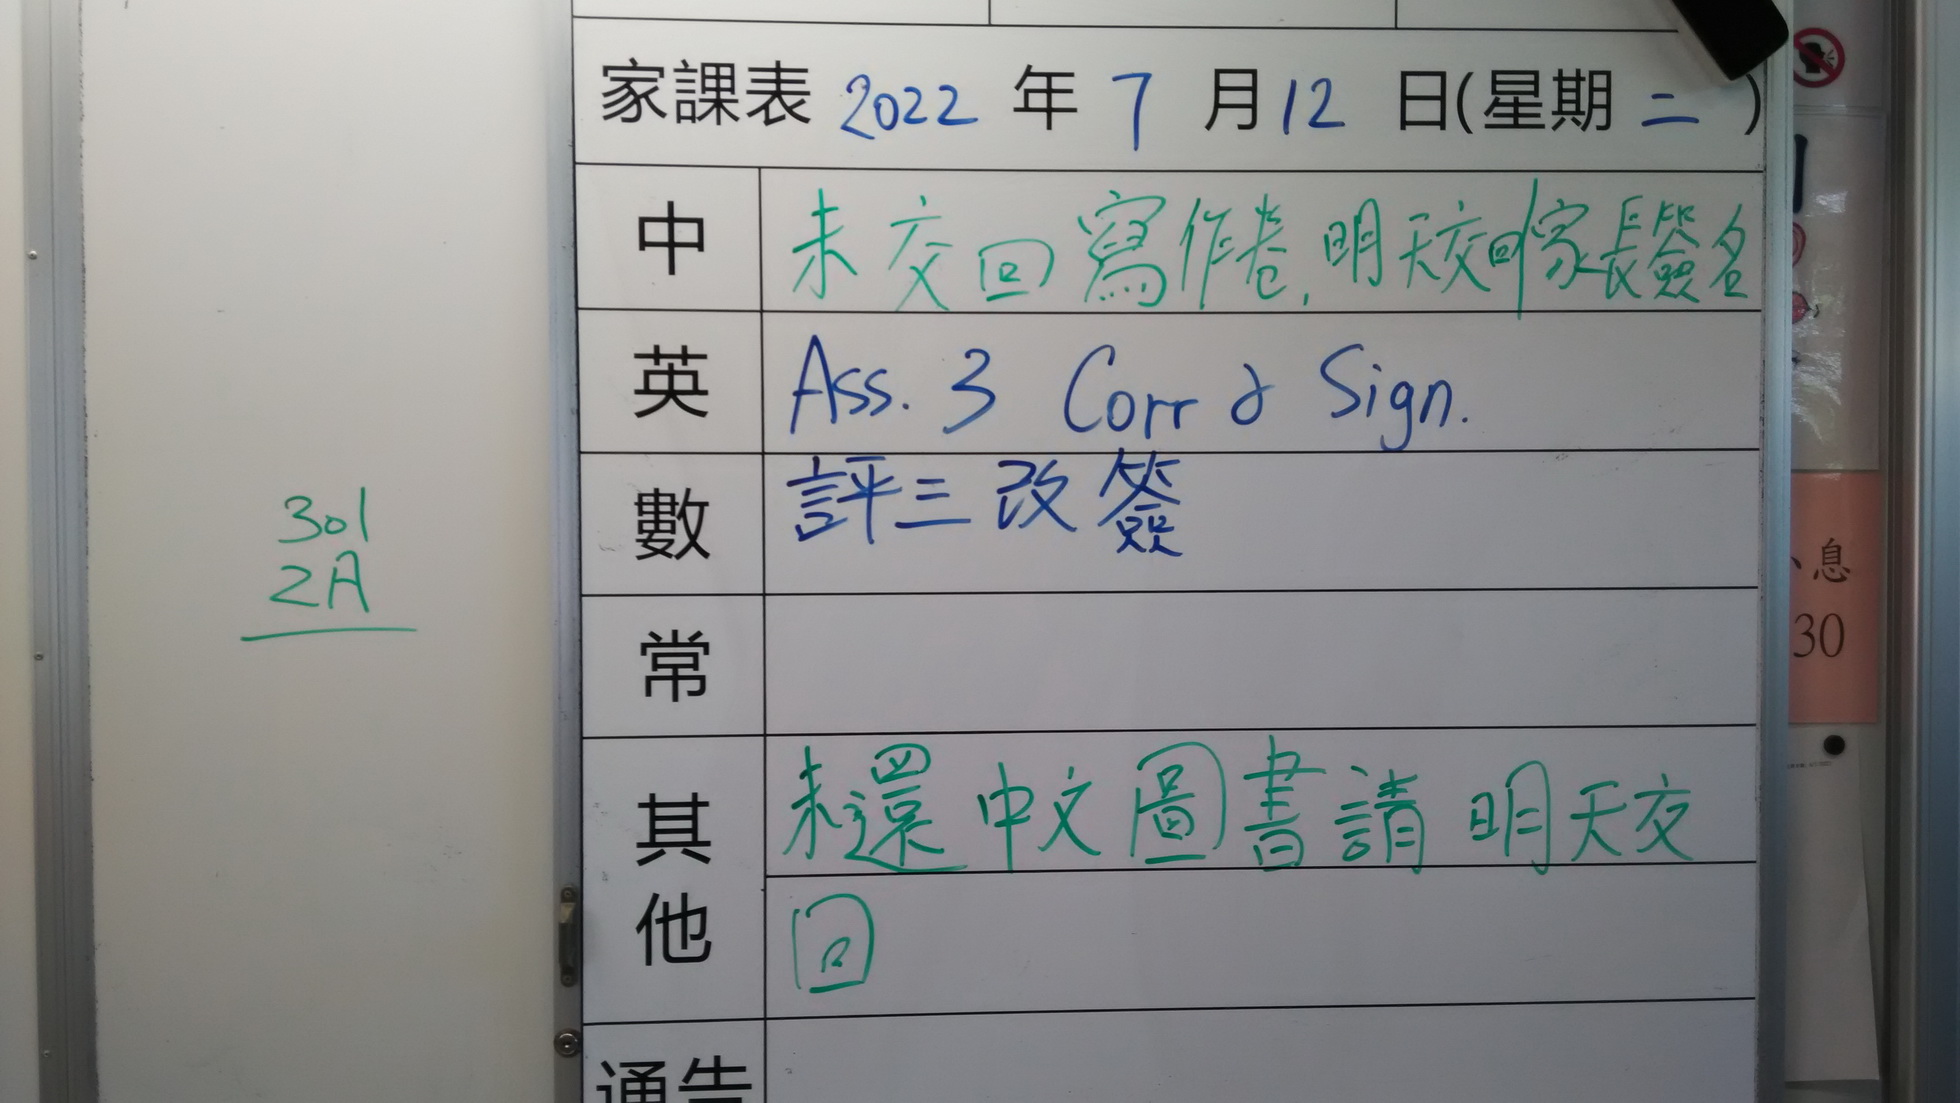 家課表 2022 年 7 月 12 日(星期 二 )
中 未交回寫作卷,明天交回家長簽名
英 Ass. 3 Corr & Sign.
數 評三改簽
常
其他 未還中文圖書請明天交
回
通告
301
2A
息
30